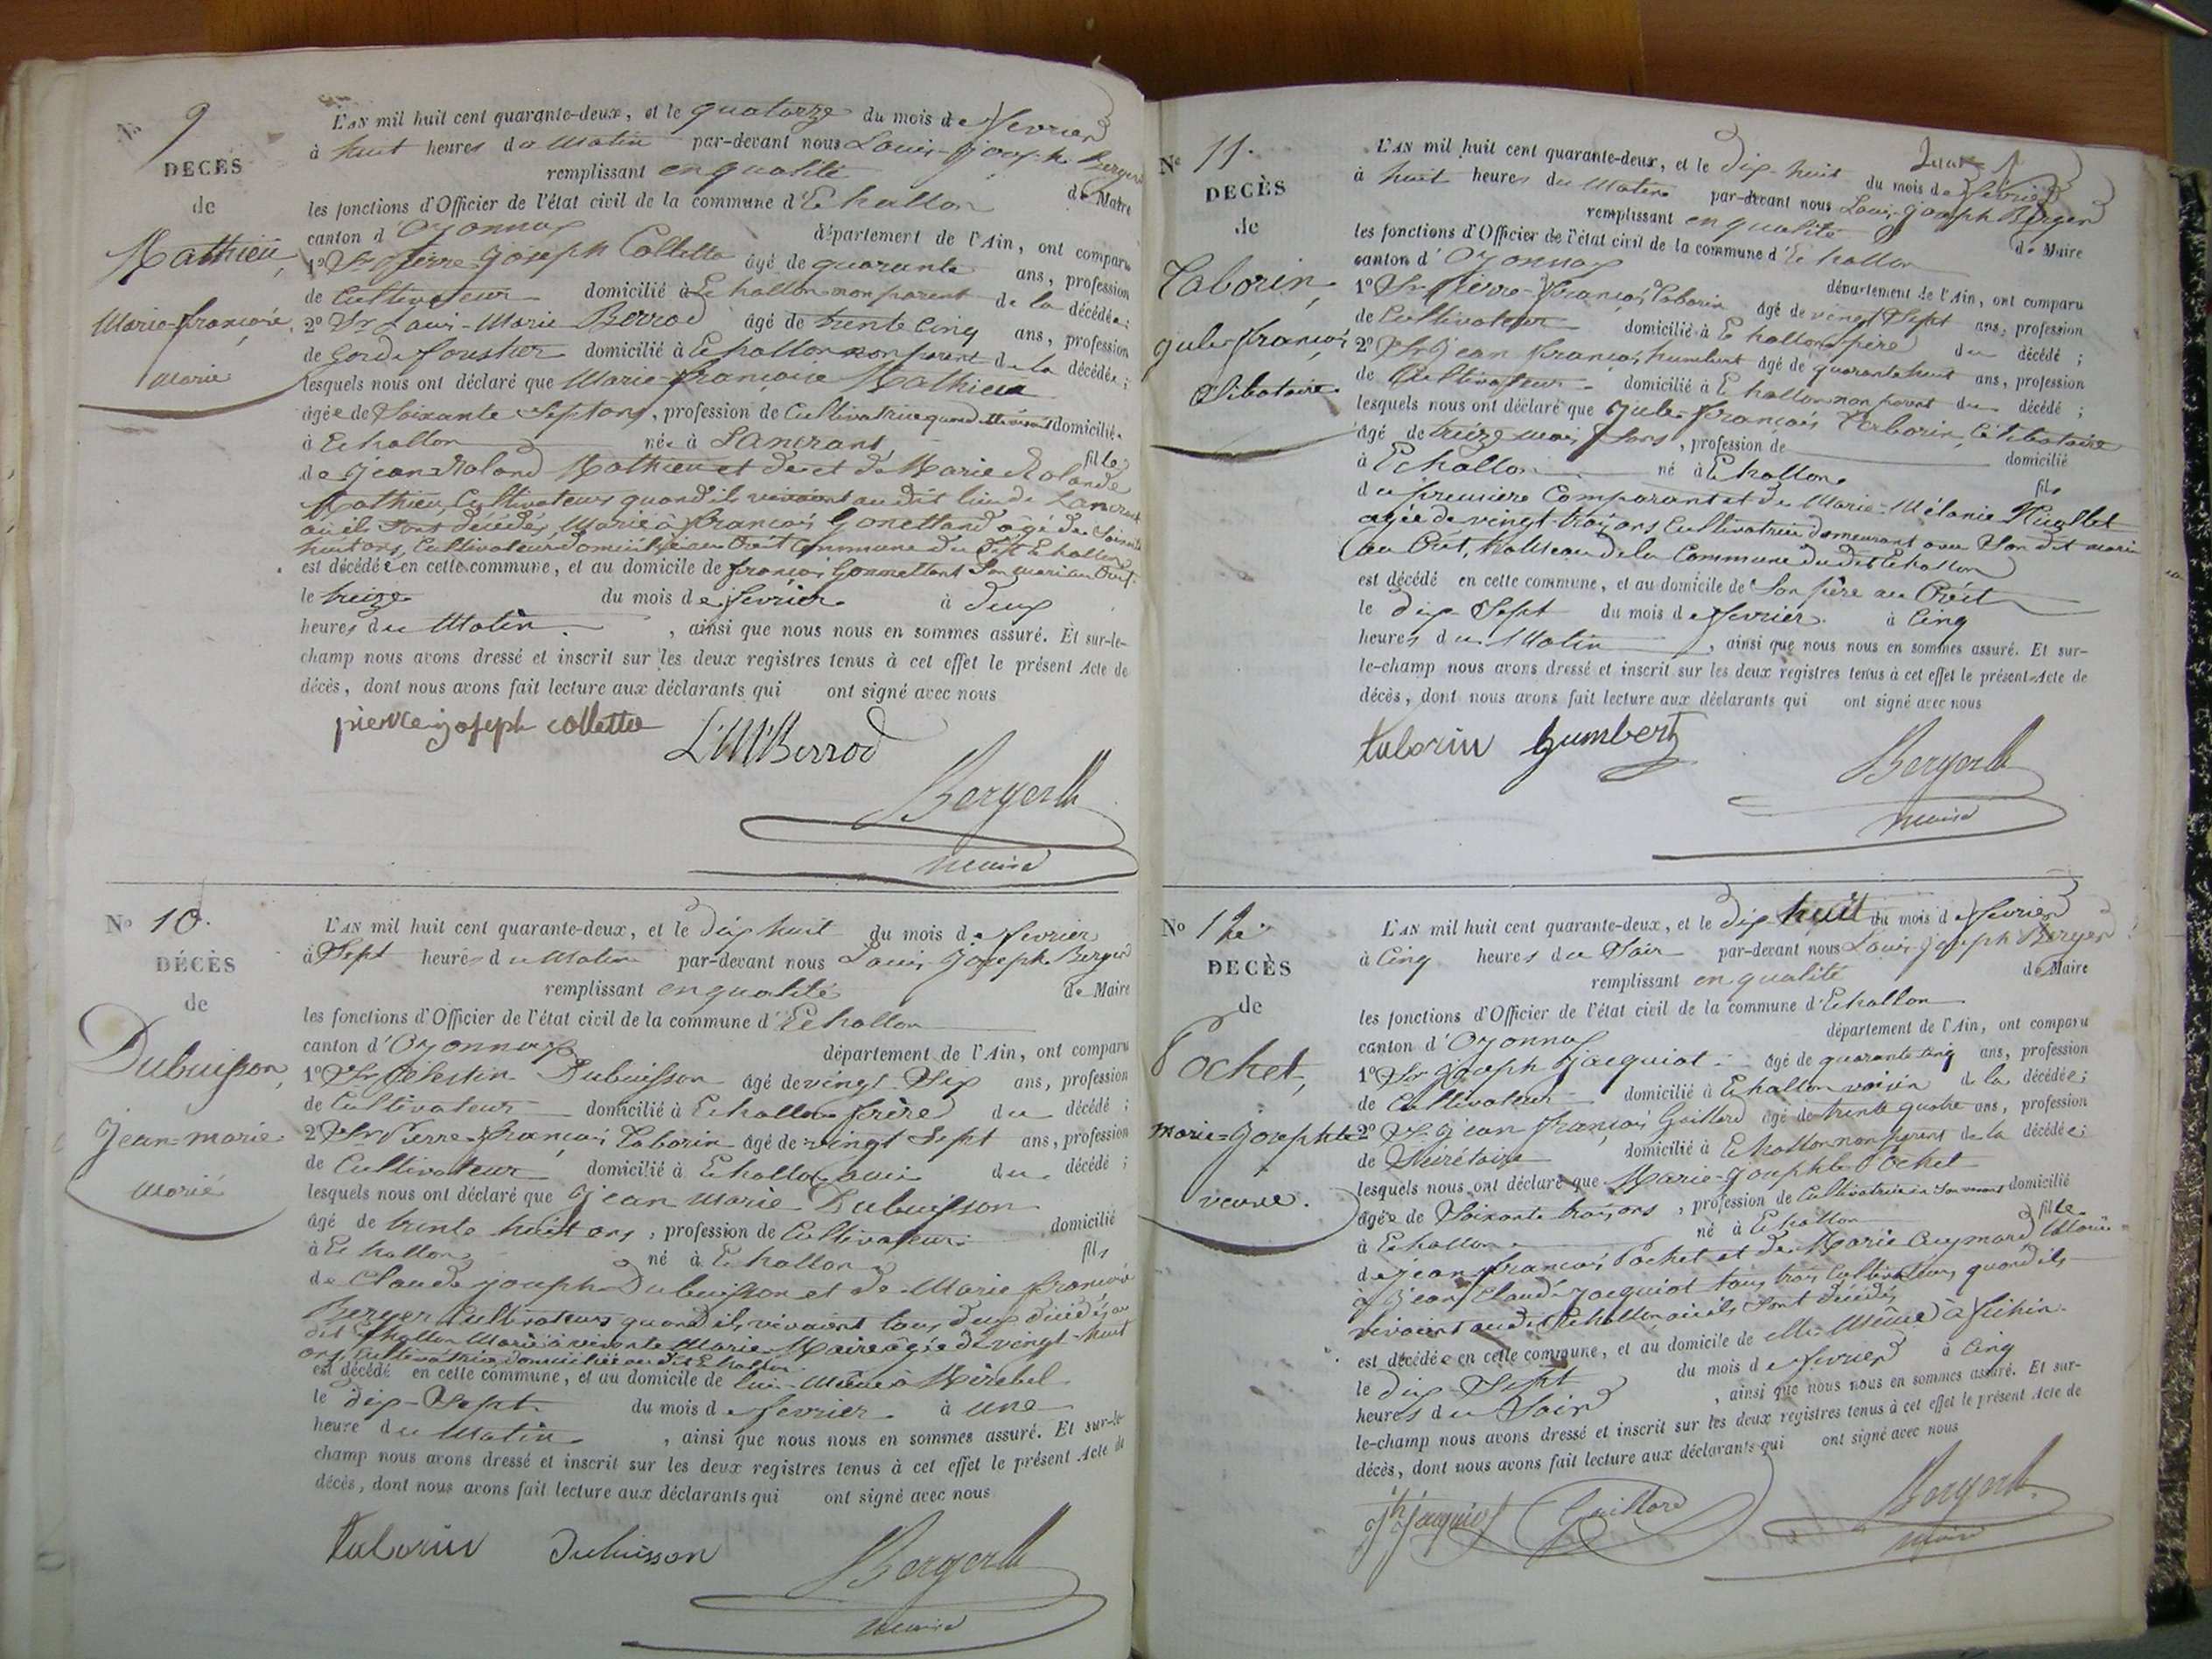 N° 9
DÉCÈS
de
Mathieu,
Marie-françoise,
Marie
L'AN mil huit cent quarante-deux, et le quatorze du mois de fevrier
à huit heures du Matin par-devant nous Louis-Joseph Berger
remplissant en qualité de Maire
les fonctions d'Officier de l'état civil de la commune d'Echallon
canton d'Oyonnax département de l'Ain, ont comparu
1° Sr Pierre Joseph Collette âgé de quarante ans, profession
de Cultivateur domicilié à Echallon non parent de la décédée;
2° Sr Louis-Marie Berrod âgé de trente Cinq ans, profession
de Garde forestier domicilié à Echallon non parent de la décédée;
lesquels nous ont déclaré que Marie-françoise Mathieu
âgée de Soixante Sept ans, profession de Cultivatrice quand elle vivait domiciliée
à Echallon née à Lancrans fille
de Jean Roland Mathieu et de et de Marie Rolande
Mathieu, Cultivateurs quand ils vivaient au dit lieu de Lancrans
où ils sont décédés, Marié à françois Gonettand âgé de Soixante
huit ans, Cultivateur domicilié au Crêt Commune du dit Echallon
est décédée en cette commune, et au domicile de françois Gonnettant Son mari au Crêt.
le treize du mois de fevrier à deux
heures du Matin, ainsi que nous nous en sommes assuré. Et sur-le-
champ nous avons dressé et inscrit sur les deux registres tenus à cet effet le présent Acte de
décès, dont nous avons fait lecture aux déclarants qui ont signé avec nous
pierre joseph collette L M Berrod
Berger
maire
N° 10.
DÉCÈS
de
Dubuisson,
Jean-marie
Marié
L'AN mil huit cent quarante-deux, et le dix huit du mois de fevrier
à Sept heures du Matin par-devant nous Louis Joseph Berger
remplissant en qualité de Maire
les fonctions d'Officier de l'état civil de la commune d'Echallon
canton d'Oyonnax département de l'Ain, ont comparu
1° Sr Célestin Dubuisson âgé de vingt Six ans, profession
de Cultivateur domicilié à Echallon frère du décédé;
2° Sr Pierre-françois Taborin âgé de vingt Sept ans, profession
de Cultivateur domicilié à Echallon ami du décédé;
lesquels nous ont déclaré que Jean Marie Dubuisson
âgé de trente huit ans, profession de Cultivateur domicilié
à Echallon né à Echallon fils
de Claude joseph Dubuisson et de Marie françoise
Berger Cultivateurs quand ils vivaient tous deux décédés au
dit Echallon Marié à vivante Marie Maire âgée de vingt-huit
ans, Cultivatrice domiciliée au dit Echallon
est décédé en cette commune, et au domicile de lui-même à Mirebel
le dix-Sept du mois de fevrier à une
heure du Matin, ainsi que nous nous en sommes assuré. Et sur-le-
champ nous avons dressé et inscrit sur les deux registres tenus à cet effet le présent Acte de
décès, dont nous avons fait lecture aux déclarants qui ont signé avec nous
taborin Dubuisson
Berger
maire
N° 11.
DÉCÈS
de
Taborin,
Jules françois
Célibataire
L'AN mil huit cent quarante-deux, et le dix-huit du mois de février
à huit heures du Matin par-devant nous Louis-Joseph Berger
remplissant en qualité de Maire
les fonctions d'Officier de l'état civil de la commune d'Echallon
canton d'Oyonnax département de l'Ain, ont comparu
1° Sr Pierre-françois Taborin âgé de vingt Sept ans, profession
de Cultivateur domicilié à Echallon père du décédé;
2° Sr Jean françois humbert âgé de quarante huit ans, profession
de Cultivateur domicilié à Echallon non parent du décédé;
lesquels nous ont déclaré que Jules françois Taborin, Célibataire
âgé de treize mois ans, profession de domicilié
à Echallon né à Echallon fils
du premier Comparant et de Marie-Mélanie
agée de vingt-trois ans Cultivatrice demeurant avec Son dit mari
au Crêt, hameau de la Commune du dit Echallon
est décédé en cette commune, et au domicile de Son père au Crêt
le dix-Sept du mois de fevrier à Cinq
heures du Matin, ainsi que nous nous en sommes assuré. Et sur-
le-champ nous avons dressé et inscrit sur les deux registres tenus à cet effet le présent Acte de
décès, dont nous avons fait lecture aux déclarants qui ont signé avec nous
taborin humbert
Berger
maire
N° 12.
DÉCÈS
de
Pochet,
Marie-Josephte
veuve.
L'AN mil huit cent quarante-deux, et le dix-huit du mois de fevrier
à Cinq heures du Soir par-devant nous Louis-joseph Berger
remplissant en qualité de Maire
les fonctions d'Officier de l'état civil de la commune d'Echallon
canton d'Oyonnax département de l'Ain, ont comparu
1° Sr Joseph Jacquiot âgé de quarante cinq ans, profession
de Cultivateur domicilié à Echallon voisin de la décédée;
2° Sr Jean françois Gaillard âgé de trente quatre ans, profession
de Sécrétaire domicilié à Echallon non parent de la décédée;
lesquels nous ont déclaré que Marie-Josephte Pochet
âgée de Soixante trois ans, profession de Cultivatrice en Son vivant domicilié
à Echallon né à Echallon fille
de jean françois Pochet et de Marie Aymard Mariée
à Jean Claude Jacquiot tous trois Cultivateurs quand ils
vivaient au dit Echallon où ils Sont décédés
est décédée en cette commune, et au domicile de elle Même à
le dix-Sept du mois de fevrier à Cinq
heures du Soir, ainsi que nous nous en sommes assuré. Et sur-
le-champ nous avons dressé et inscrit sur les deux registres tenus à cet effet le présent Acte de
décès, dont nous avons fait lecture aux déclarants qui ont signé avec nous
Jh Jacquiot Gaillard
Berger
maire